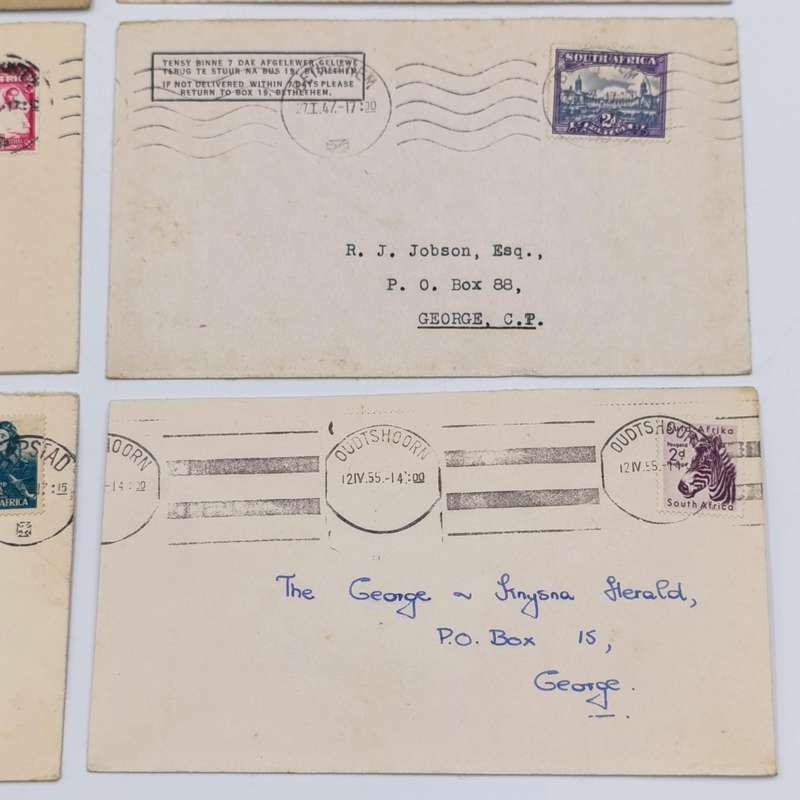 TENSY BINNE 7 DAE AFGELEWER GELIEWE
TERUG TE STUUR NA BUS 19, BETHLEHEM.
IF NOT DELIVERED WITHIN 7 DAYS PLEASE
RETURN TO BOX 19, BETHLEHEM.
27.I.47.-17:00
SOUTH AFRICA
2d
R. J. Jobson, Esq.,
P. O. Box 88,
GEORGE, C.P.
PSTAD
AFRICA
HOORN
-14:00
OUDTSHOORN
12IV.55.-14:00
OUDTSHOORN
12IV.55.-14
Suid-Afrika
2d
South Africa
The George ~ Knysna Herald,
P.O. Box 15,
George.